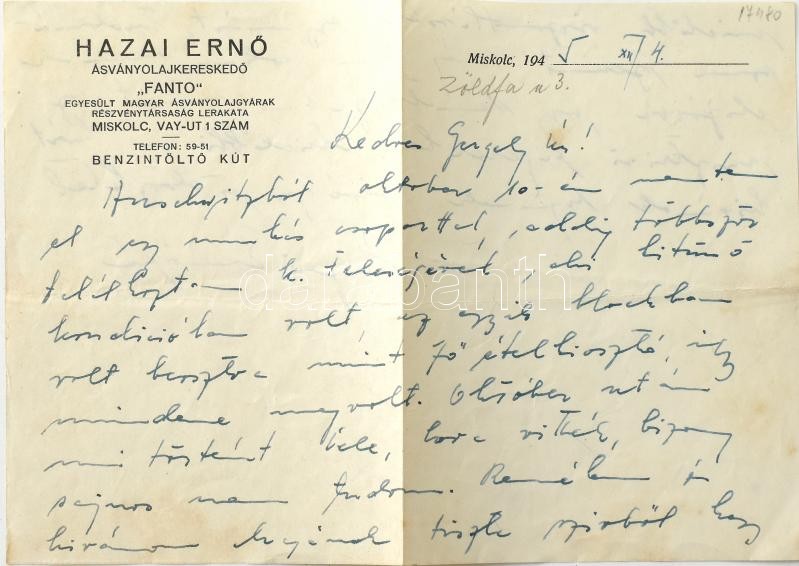 17480
HAZAI ERNŐ
ÁSVÁNYOLAJKERESKEDŐ
„FANTO"
EGYESÜLT MAGYAR ÁSVÁNYOLAJGYÁRAK
RÉSZVÉNYTÁRSASÁG LERAKATA
MISKOLC, VAY-UT 1 SZÁM
TELEFON: 59-51
BENZINTÖLTŐ KÚT
Miskolc, 194 5 XII 4.
Zöldfa u 3.
Kedves Gergely úr!
Auschwitzból oktober 10-én mentem
el egy munkás csoporttal, addig többször
találkoztam k. feleségével, aki kitünő
kondicióban volt, az egyik blockban
volt beosztva mint fő ételkiosztó, így
mindene megvolt. Október után
mi történt vele, hova vitték, bizony
sajnos nem tudom. Remélem és
kivánom magának tiszta szivből hogy
darabanth